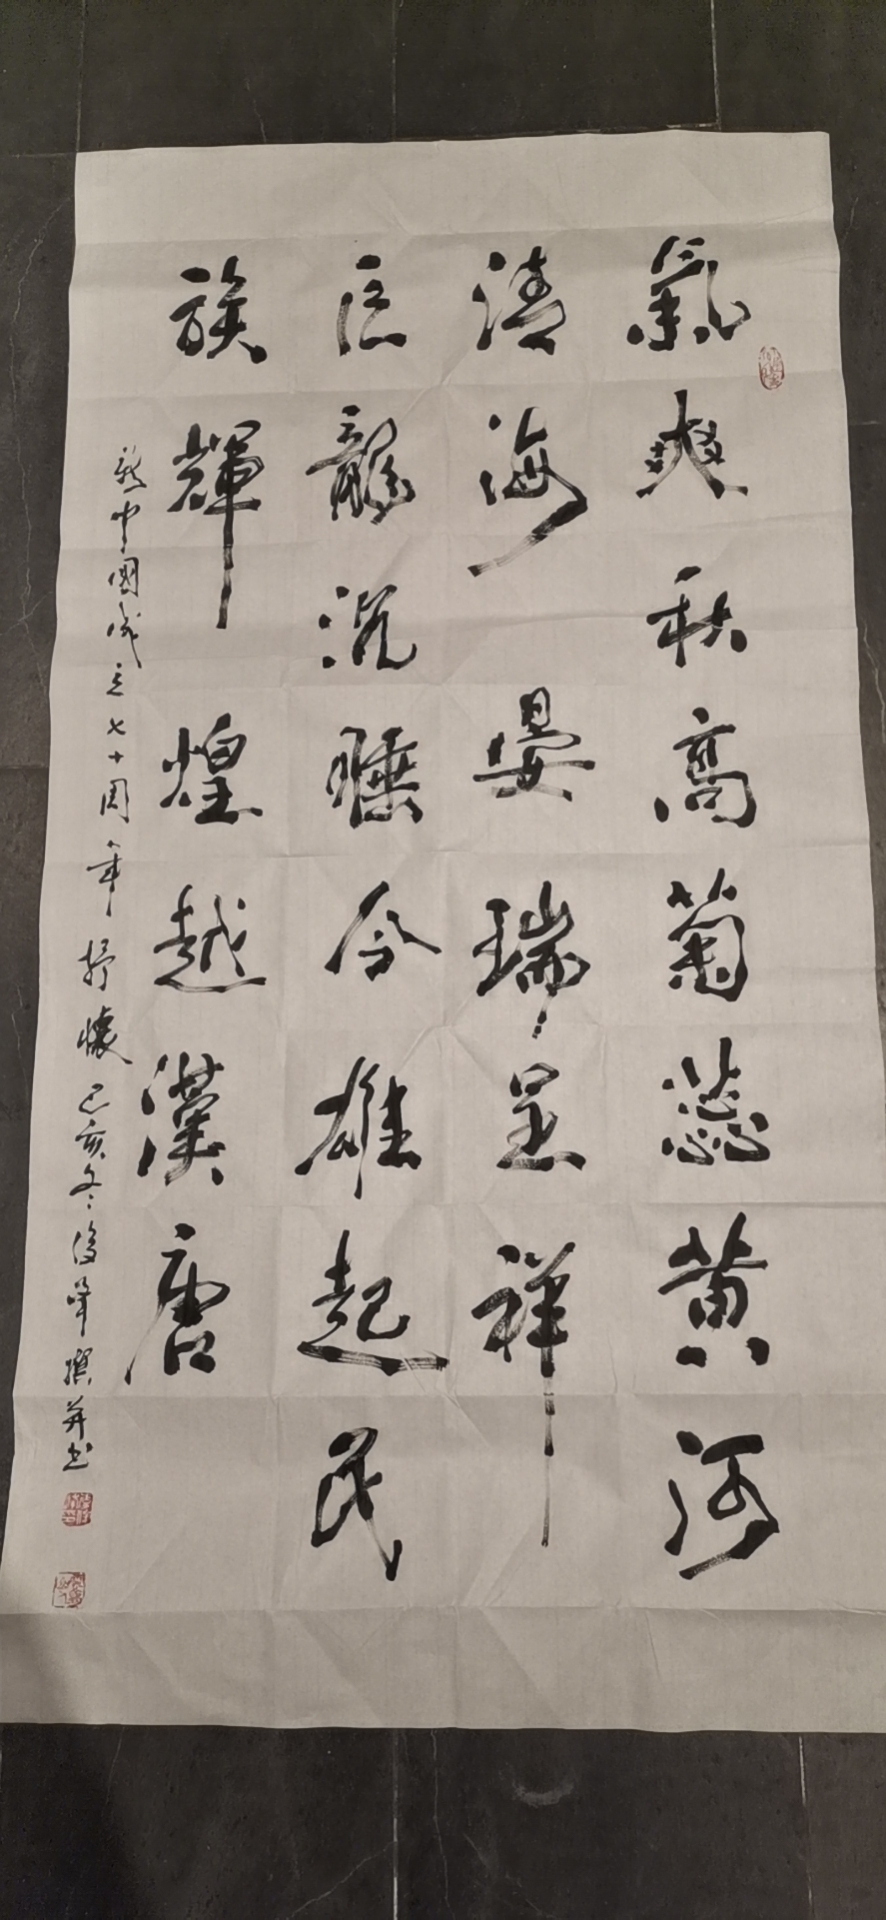 氣爽秋高菊蕊黄河
清海晏瑞呈祥
巨龍沉睡今雄起民
族輝煌越漢唐
新中國成立七十周年抒懷己亥冬俊峰撰并书